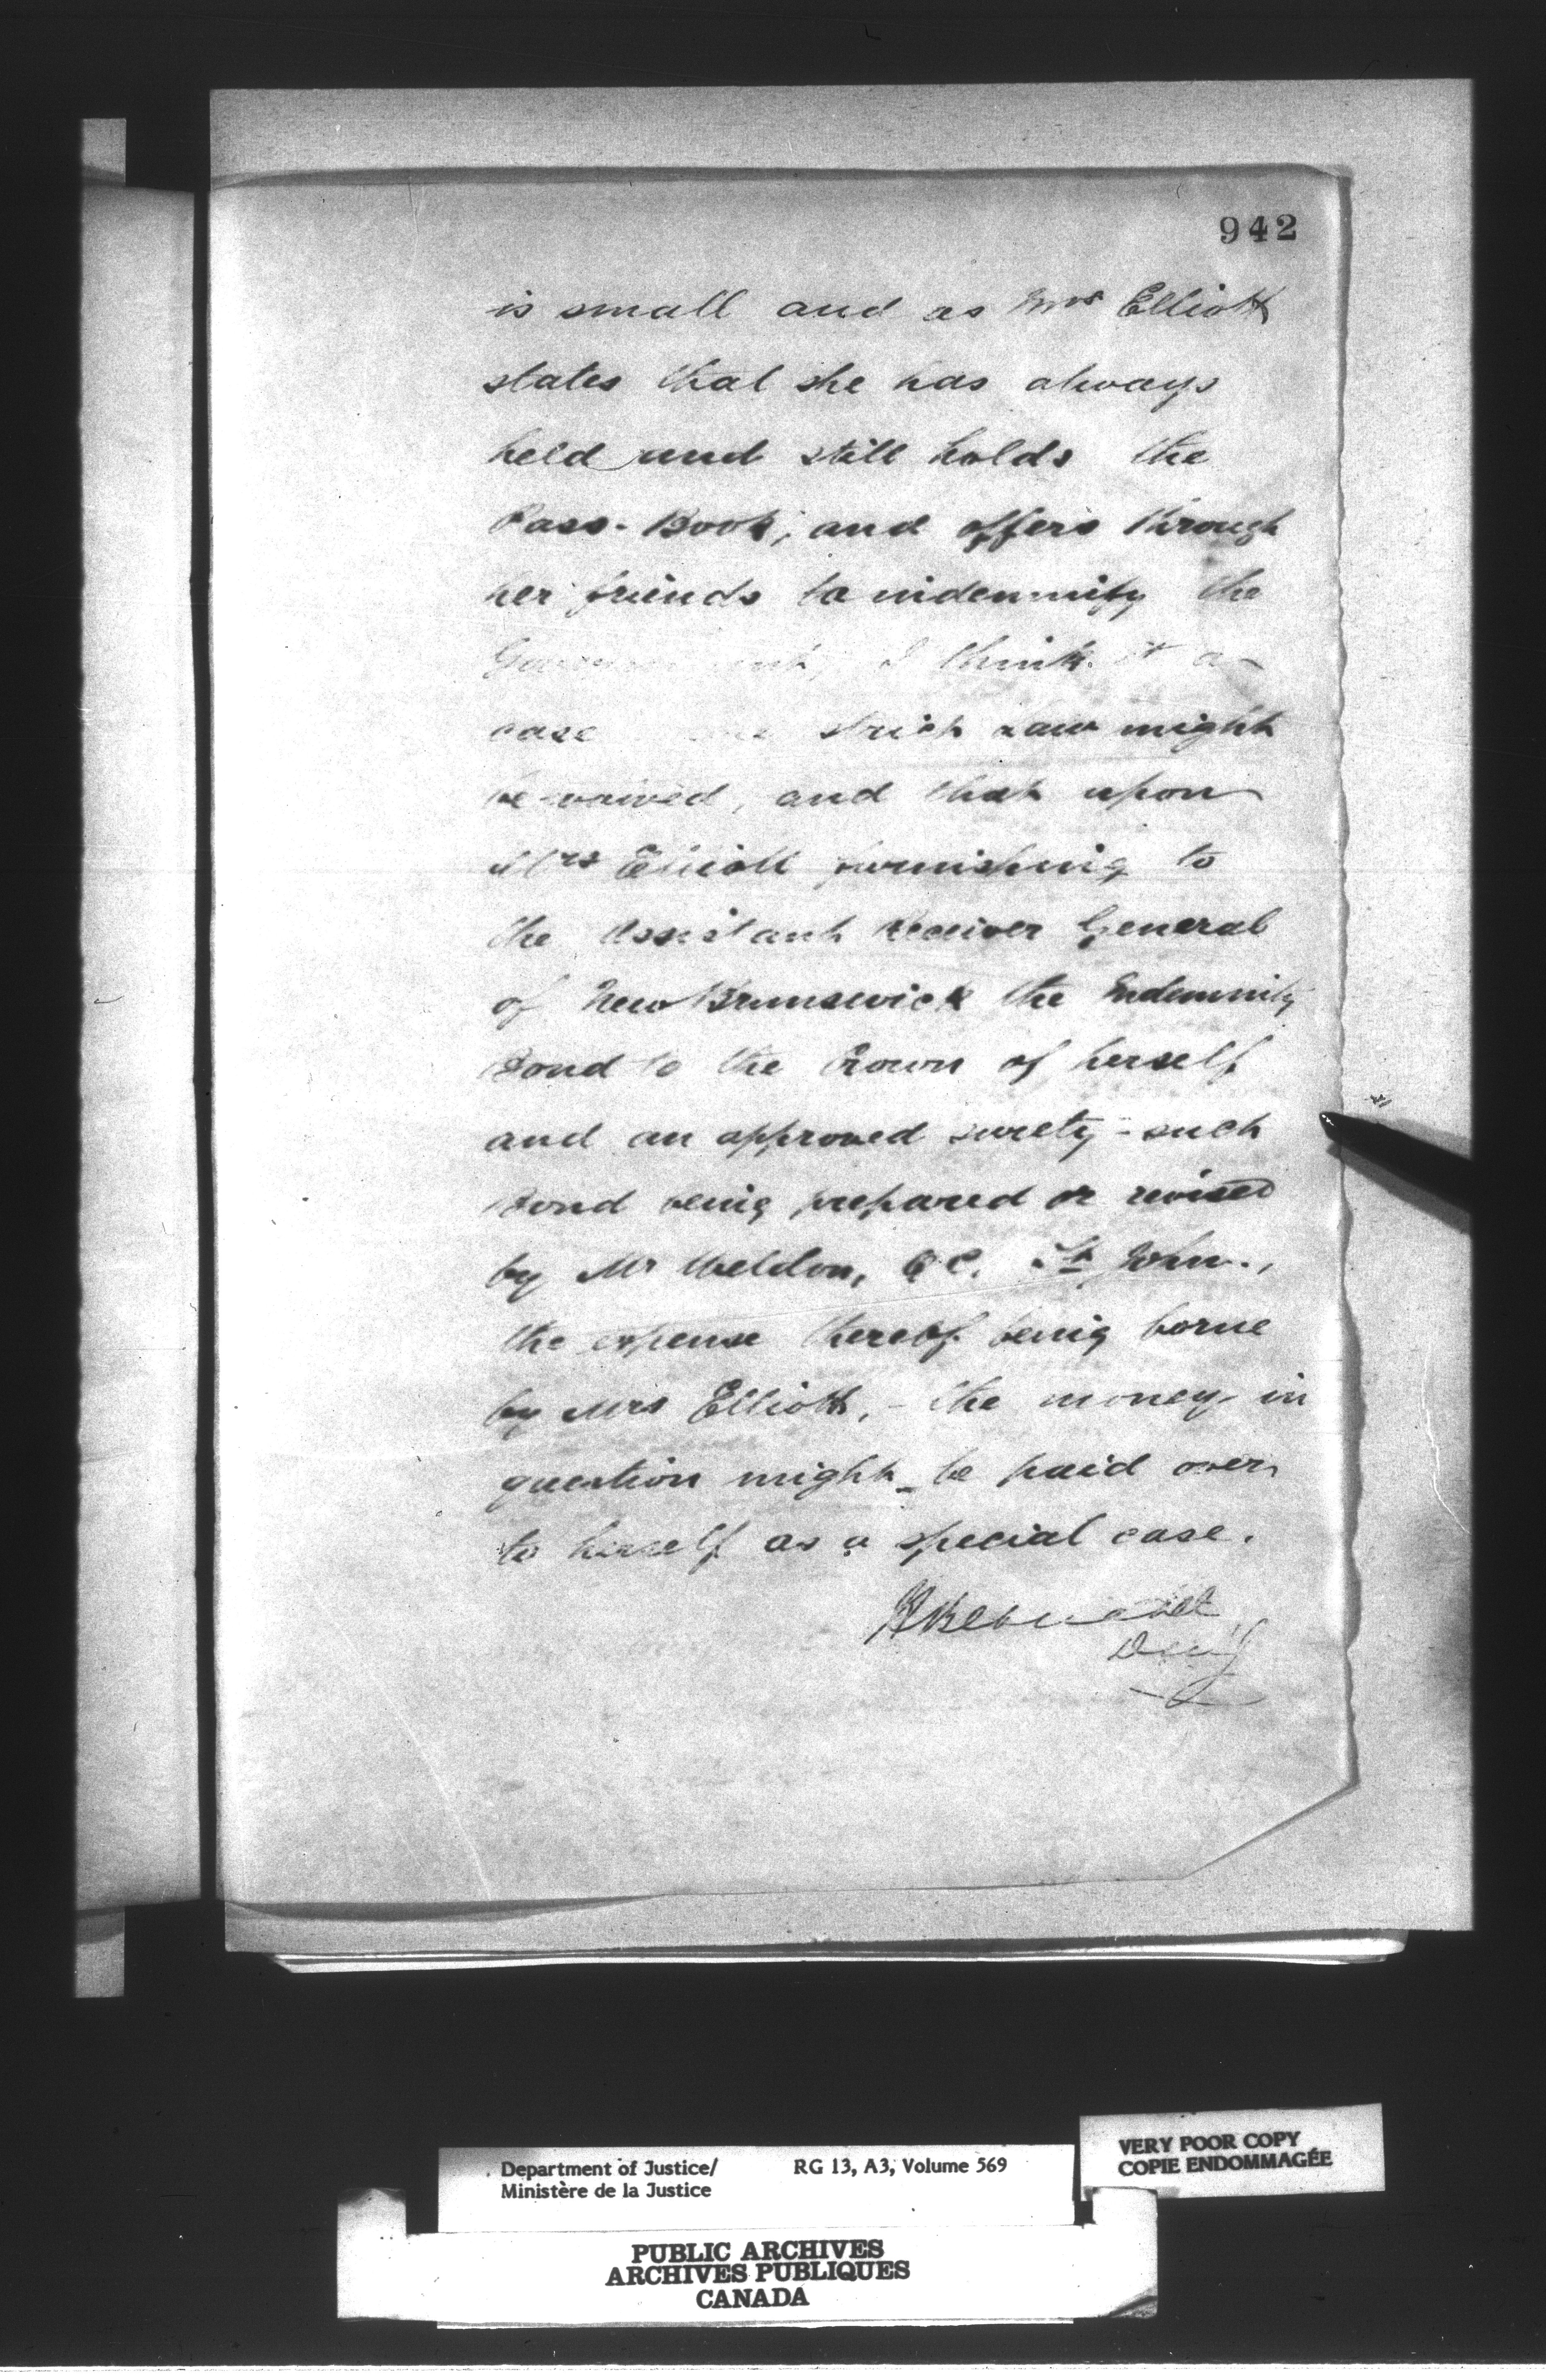 942
is small and as Mrs Elliott
states that she has always
held and still holds the
Pass-Book, and offers through
her friends to indemnify the
Government, I think it a
case strict law might
be waived, and that upon
Mrs Elliott furnishing to
the Assistant Receiver General
of New Brunswick the Indemnity
Bond to the Crown of herself
and an approved surety - such
Bond being prepared or revised
by Mr Weldon, Q.C. St John.,
the expense thereof being borne
by Mrs Elliott, - the money in
question might be paid over
to herself as a special case.
Department of Justice/ RG 13, A3, Volume 569
Ministère de la Justice
VERY POOR COPY
COPIE ENDOMMAGÉE
PUBLIC ARCHIVES
ARCHIVES PUBLIQUES
CANADA